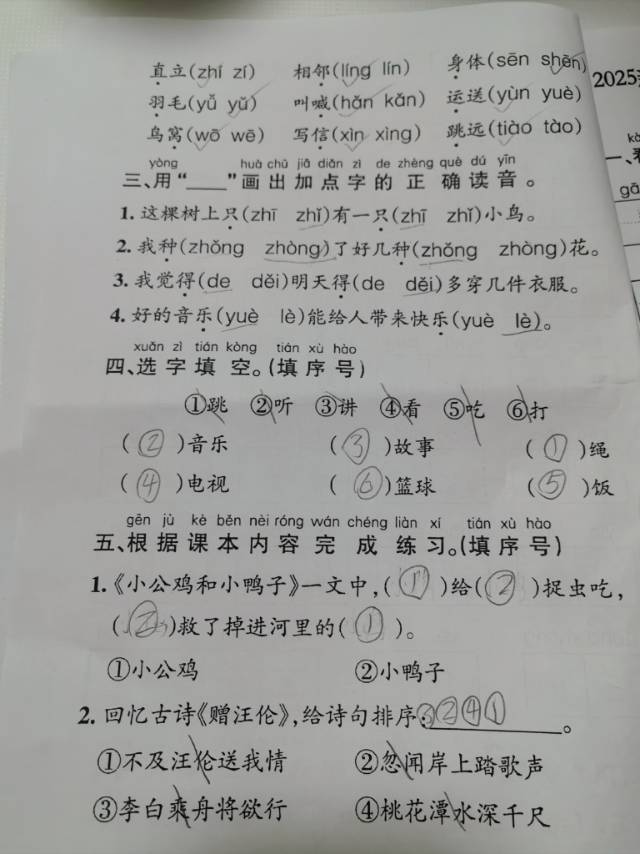 直立(zhí zí) 相邻(líng lín) 身体(sēn shēn)
羽毛(yǔ yǔ) 叫喊(hǎn kǎn) 运送(yùn yuè)
乌窝(wō wē) 写信(xìn xìng) 跳远(tiào tào)
yòng huà chū jiā diǎn zì de zhèng què dú yīn
三、用“____”画出加点字的正确读音。
1. 这棵树上只(zhī zhǐ)有一只(zhī zhǐ)小鸟。
2. 我种(zhǒng zhòng)了好几种(zhǒng zhòng)花。
3. 我觉得(de děi)明天得(de děi)多穿几件衣服。
4. 好的音乐(yuè lè)能给人带来快乐(yuè lè)。
xuǎn zì tián kòng tián xù hào
四、选字填空。(填序号)
①跳 ②听 ③讲 ④看 ⑤吃 ⑥打
(②)音乐 (③)故事 (①)绳
(④)电视 (⑥)篮球 (⑤)饭
gēn jù kè běn nèi róng wán chéng liàn xí tián xù hào
五、根据课本内容完成练习。(填序号)
1.《小公鸡和小鸭子》一文中,(①)给(②)捉虫吃,
(②)救了掉进河里的(①)。
①小公鸡 ②小鸭子
2. 回忆古诗《赠汪伦》,给诗句排序:③②④①。
①不及汪伦送我情 ②忽闻岸上踏歌声
③李白乘舟将欲行 ④桃花潭水深千尺
2025
一、